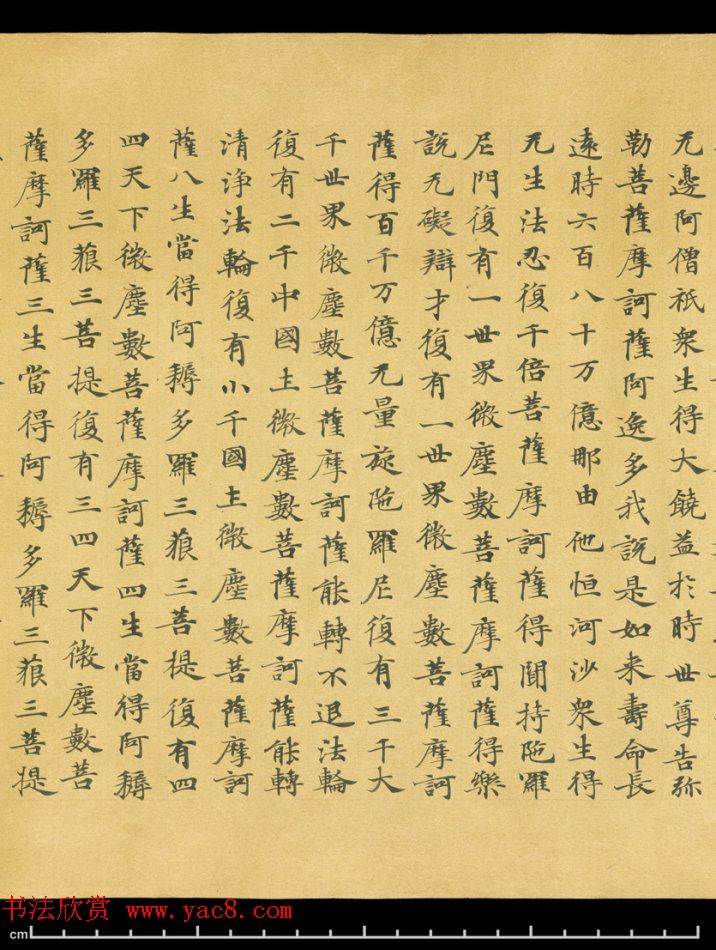 无邊阿僧祇衆生得大饒益於時世尊告弥
勒菩薩摩訶薩阿逸多我說是如来壽命長
遠時六百八十万億那由他恒河沙衆生得
无生法忍復千倍菩薩摩訶薩得聞持陁羅
尼門復有一世界微塵數菩薩摩訶薩得樂
說无礙辯才復有一世界微塵數菩薩摩訶
薩得百千万億无量旋陁羅尼復有三千大
千世界微塵數菩薩摩訶薩能轉不退法輪
復有二千中國土微塵數菩薩摩訶薩能轉
清浄法輪復有小千國土微塵數菩薩摩訶
薩八生當得阿耨多羅三藐三菩提復有四
四天下微塵數菩薩摩訶薩四生當得阿耨
多羅三藐三菩提復有三四天下微塵數菩
薩摩訶薩三生當得阿耨多羅三藐三菩提
书法欣赏 www.yac8.com
cm